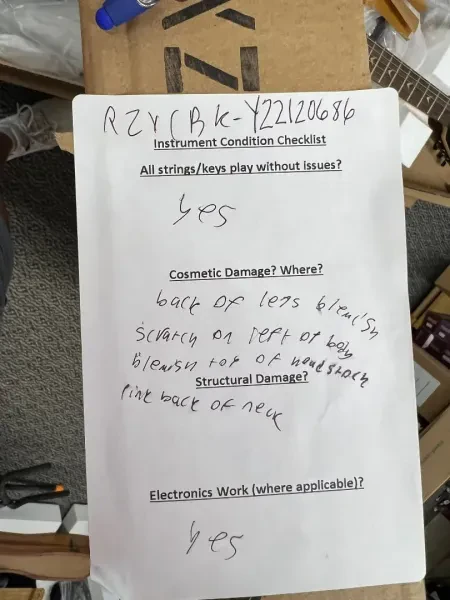 YZ
RZYCBK-Y22120686
Instrument Condition Checklist
All strings/keys play without issues?
yes
Cosmetic Damage? Where?
back of legs blemish
scratch on left of body
blemish top of headstock
Structural Damage?
back of neck
Electronics Work (where applicable)?
yes